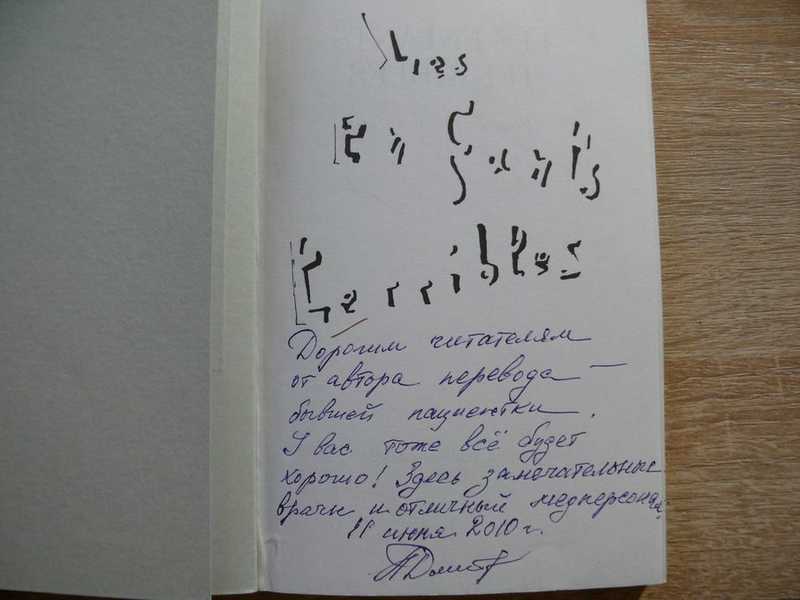 Les
Enfants
Terribles
Дорогим читателям
от автора перевода —
бывшей пациентки.
У вас тоже всё будет
хорошо! Здесь замечательные
врачи и отличный медперсонал.
11 июня 2010 г.